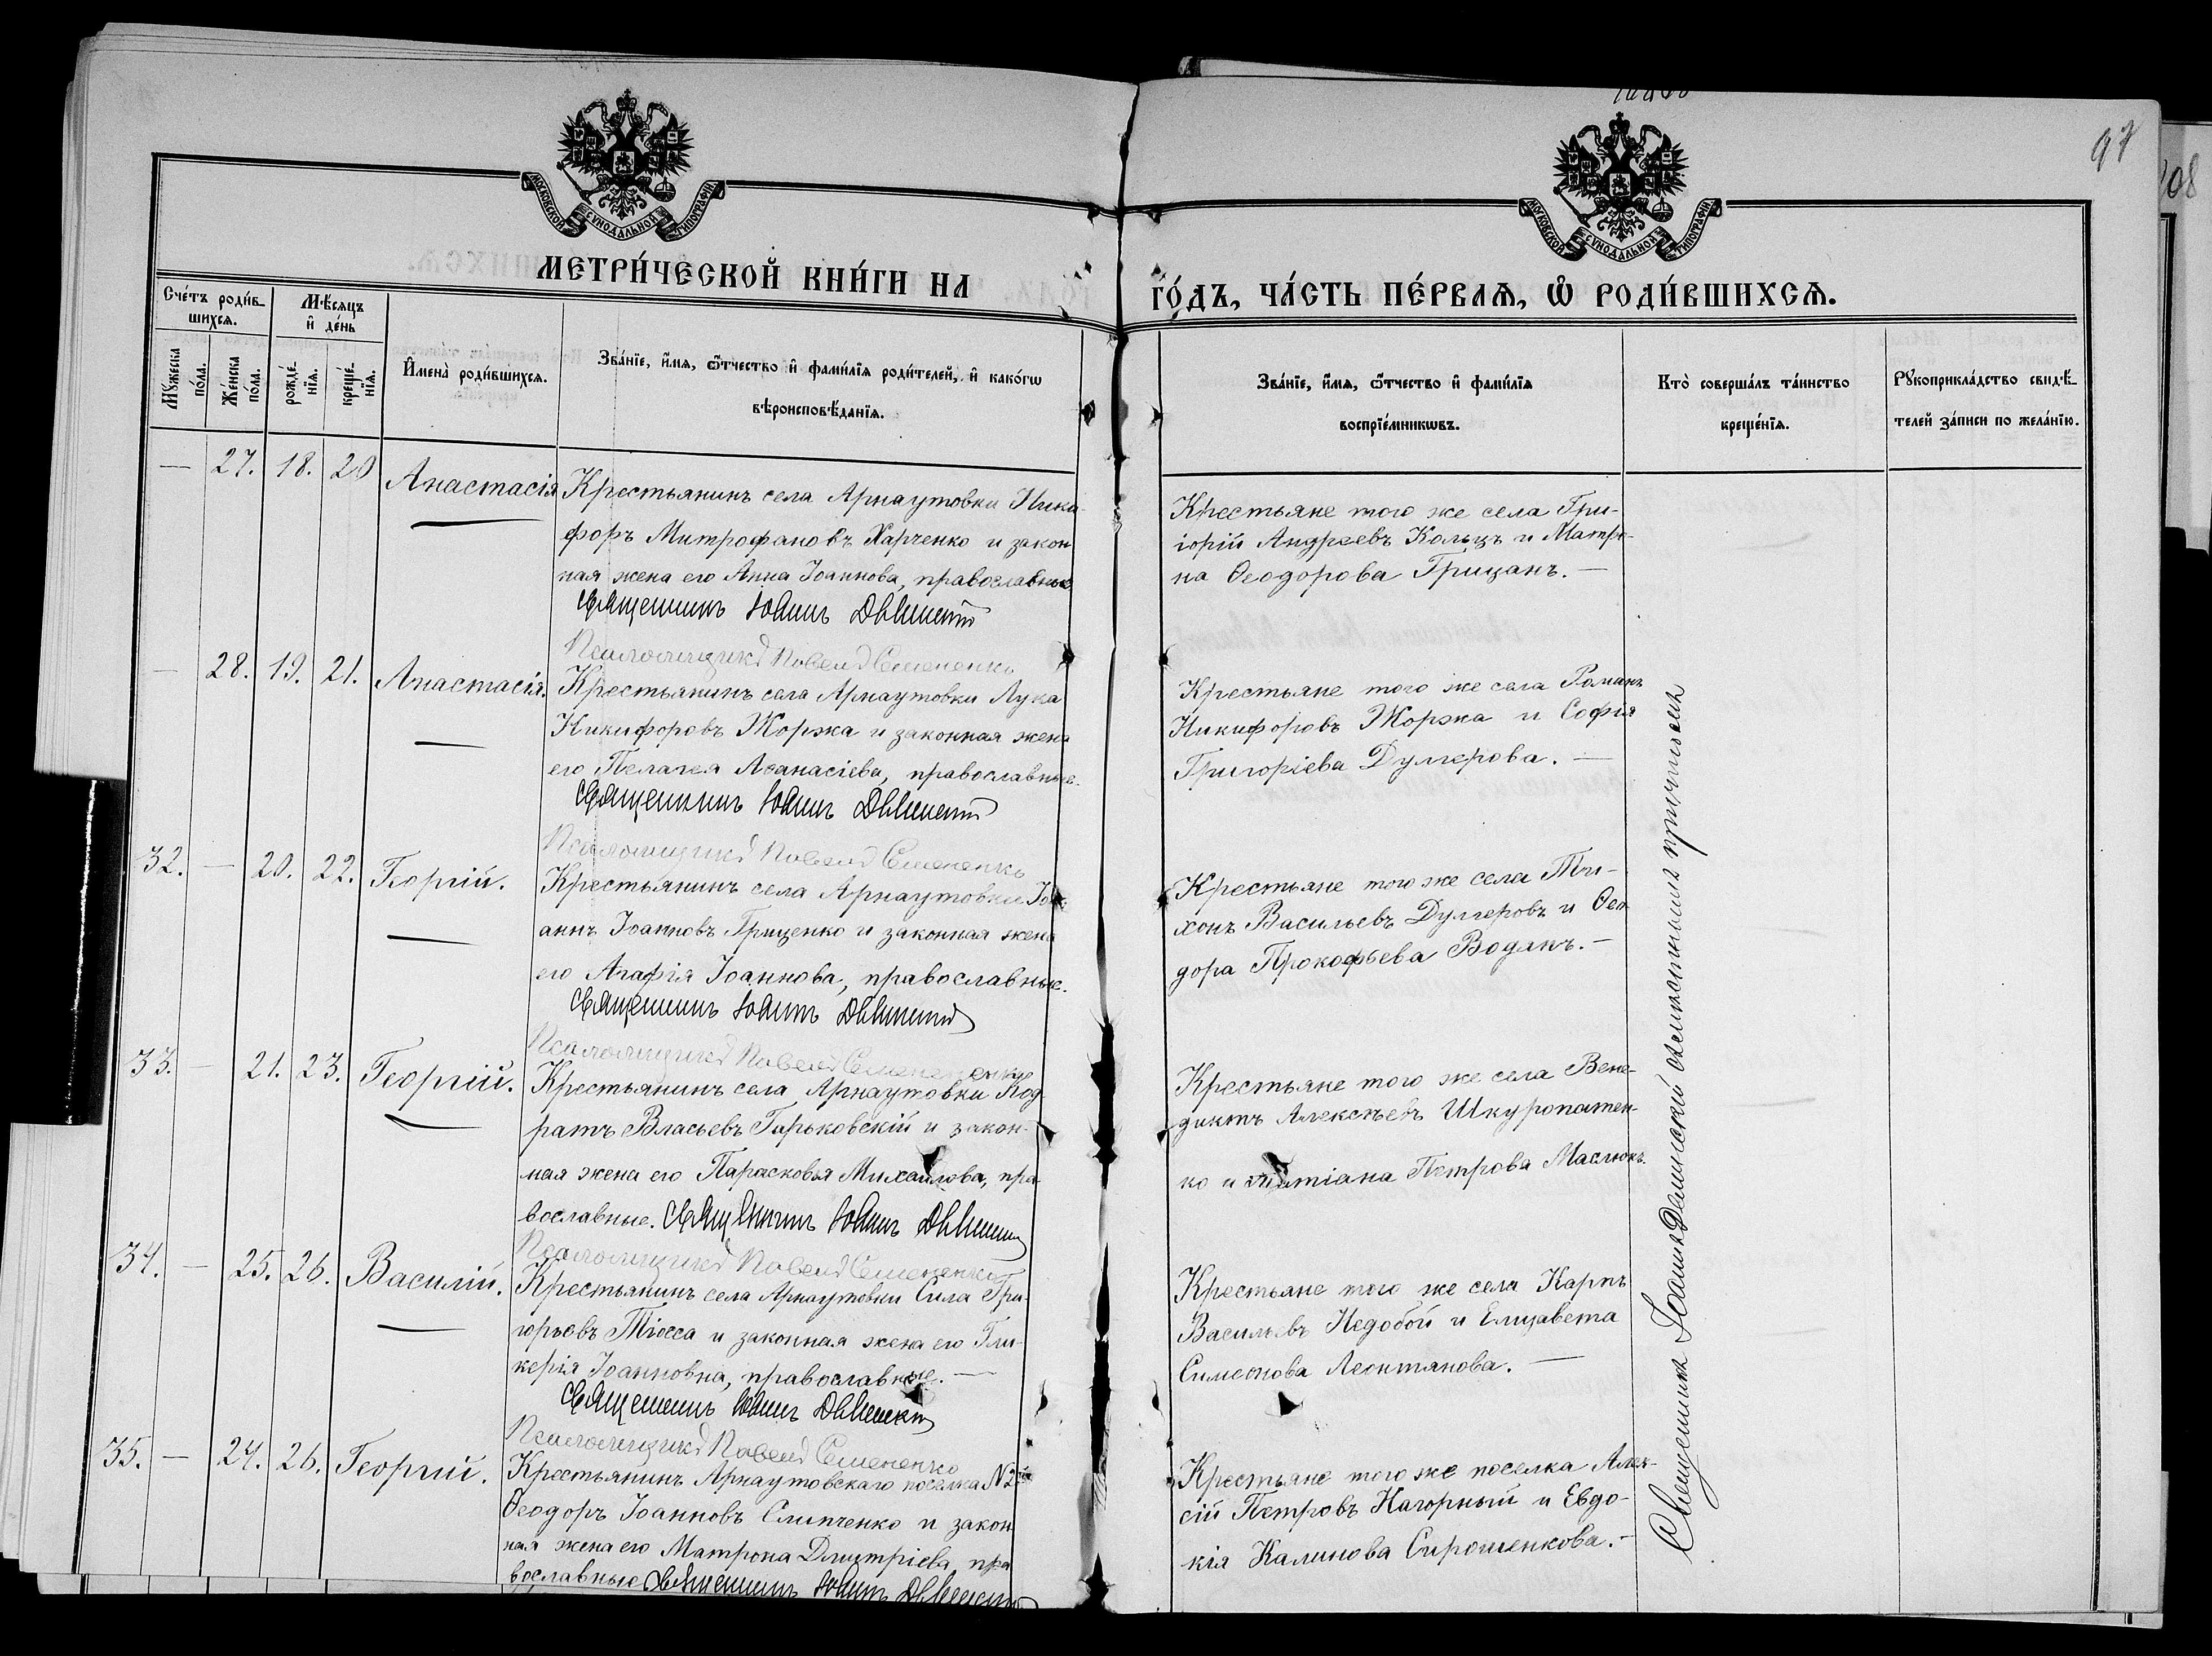 97
108
МОСКОВСКОЙ СѴНОДАЛЬНОЙ ТИПОГРАФІИ
МОСКОВСКОЙ СѴНОДАЛЬНОЙ ТИПОГРАФІИ
МЕТРИ́ЧЕСКОЙ КНИ́ГИ НА
ГО́ДЪ, ЧА́СТЬ ПЕ́РВАѦ, Ѡ҆ РОДИ́ВШИХСѦ.
Сче́тъ роди́в-
шихсѧ.
Мꙋжеска по́ла.
Же́нска по́ла.
Мѣ́сѧцъ
и҆ де́нь
рожде́-
нїѧ.
креще́-
нїѧ.
И҆мена̀ роди́вшихсѧ.
Зва́нїе, и҆́мѧ, ѻ҆́тчество и҆ фами́лїѧ роди́телей, и҆ како́гѡ
вѣроисповѣ́данїѧ.
Зва́нїе, и҆́мѧ, ѻ҆́тчество и҆ фами́лїѧ
воспрїе́мникѡвъ.
Кто̀ соверша́лъ та́инство
креще́нїѧ.
Рꙋкоприкла́дство свидѣ́-
телей за́писи по жела́нїю.
— 27. 18. 20 Анастасія
Крестьянинъ села Арнаутовки Ники-
форъ Митрофановъ Харченко и закон
ная жена его Анна Іоаннова, православные
Священникъ Іоаннъ
Псаломщикъ Павелъ Семененко
Крестьяне того же села Гри-
горій Андреевъ Кольцъ и Матро-
на Ѳеодорова Грицанъ. —
— 28. 19. 21. Анастасія.
Крестьянинъ села Арнаутовки Лука
Никифоровъ Жоржа и законная жена
его Пелагея Аѳанасіева, православные.
Священникъ Іоаннъ
Псаломщикъ Павелъ Семененко
Крестьяне того же села Романъ
Никифоровъ Жоржа и Софія
Григоріева Дулгерова. —
32. — 20. 22. Георгій.
Крестьянинъ села Арнаутовки Іо-
аннъ Іоанновъ Гриценко и законная жена
его Агафія Іоаннова, православные.
Священникъ Іоаннъ
Псаломщикъ Павелъ Семененко
Крестьяне того же села Ти-
хонъ Васильевъ Дулгеровъ и Ѳео
дора Прокофьева Водянъ. —
33. — 21. 23. Георгій.
Крестьянинъ села Арнаутовки Код
ратъ Власьевъ Гарьковскій и закон-
ная жена его Парасковья Михайлова, пра
вославные. Священникъ Іоаннъ
Псаломщикъ Павелъ Семененко
Крестьяне того же села Вене-
диктъ Алексѣевъ Шкуропатен-
ко и Татіана Петрова Маслюкъ.
34. — 25. 26. Василій.
Крестьянинъ села Арнаутовки Сила Гри-
горьевъ Тіосса и законная жена его Гли-
керія Іоанновна, православные. —
Священникъ Іоаннъ
Псаломщикъ Павелъ Семененко
Крестьяне того же села Карпъ
Васильевъ Недобой и Елизавета
Симеонова Леонтянова. —
35. — 24. 26. Георгій.
Крестьянинъ Арнаутовскаго поселка №2
Ѳеодоръ Іоанновъ Слипченко и закон
ная жена его Матрона Дмитріева, пра
вославные Священникъ Іоаннъ
Крестьяне того же поселка Алек-
сій Петровъ Нагорный и Евдо-
кія Калинова Сирошенкова. —
Священникъ Іоаннъ